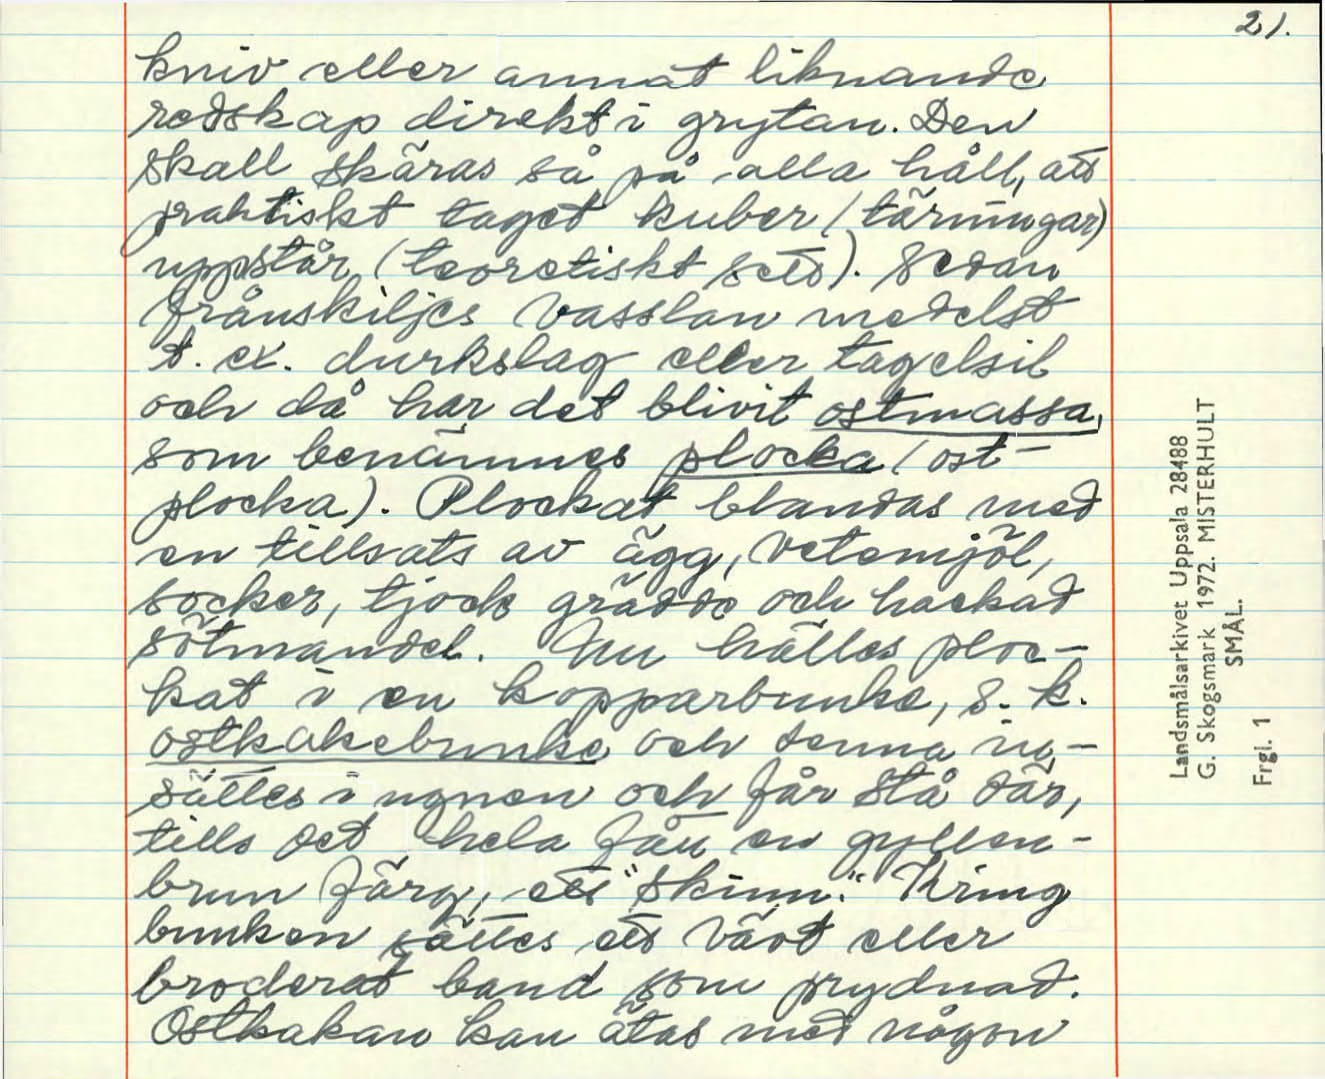 21.
kniv eller annat liknande
redskap direkt i grytan. Den
skall skäras så på alla håll, att
praktiskt taget kuber (tärningar)
uppstår (teoretiskt sett). Sedan
frånskiljes vasslan medelst
t. ex. durkslag eller tagelsil
och då har det blivit ostmassa,
som benämnes plocka (ost-
plocka). Plockat blandas med
en tillsats av ägg, vetemjöl,
socker, tjock grädde och hackad
sötmandel. Nu hälles ploc-
kat i en kopparbunke, s. k.
ostkakebunke och denna in-
sättes i ugnen och får stå där,
tills det hela fått en gyllen-
brun färg, ett "skinn". Kring
bunken sättes ett vävt eller
broderat band som prydnad.
Ostkakan kan ätas med någon
Landsmålsarkivet Uppsala 28488
G. Skogsmark 1972. MISTERHULT
SMÅL.
Frgl. 1